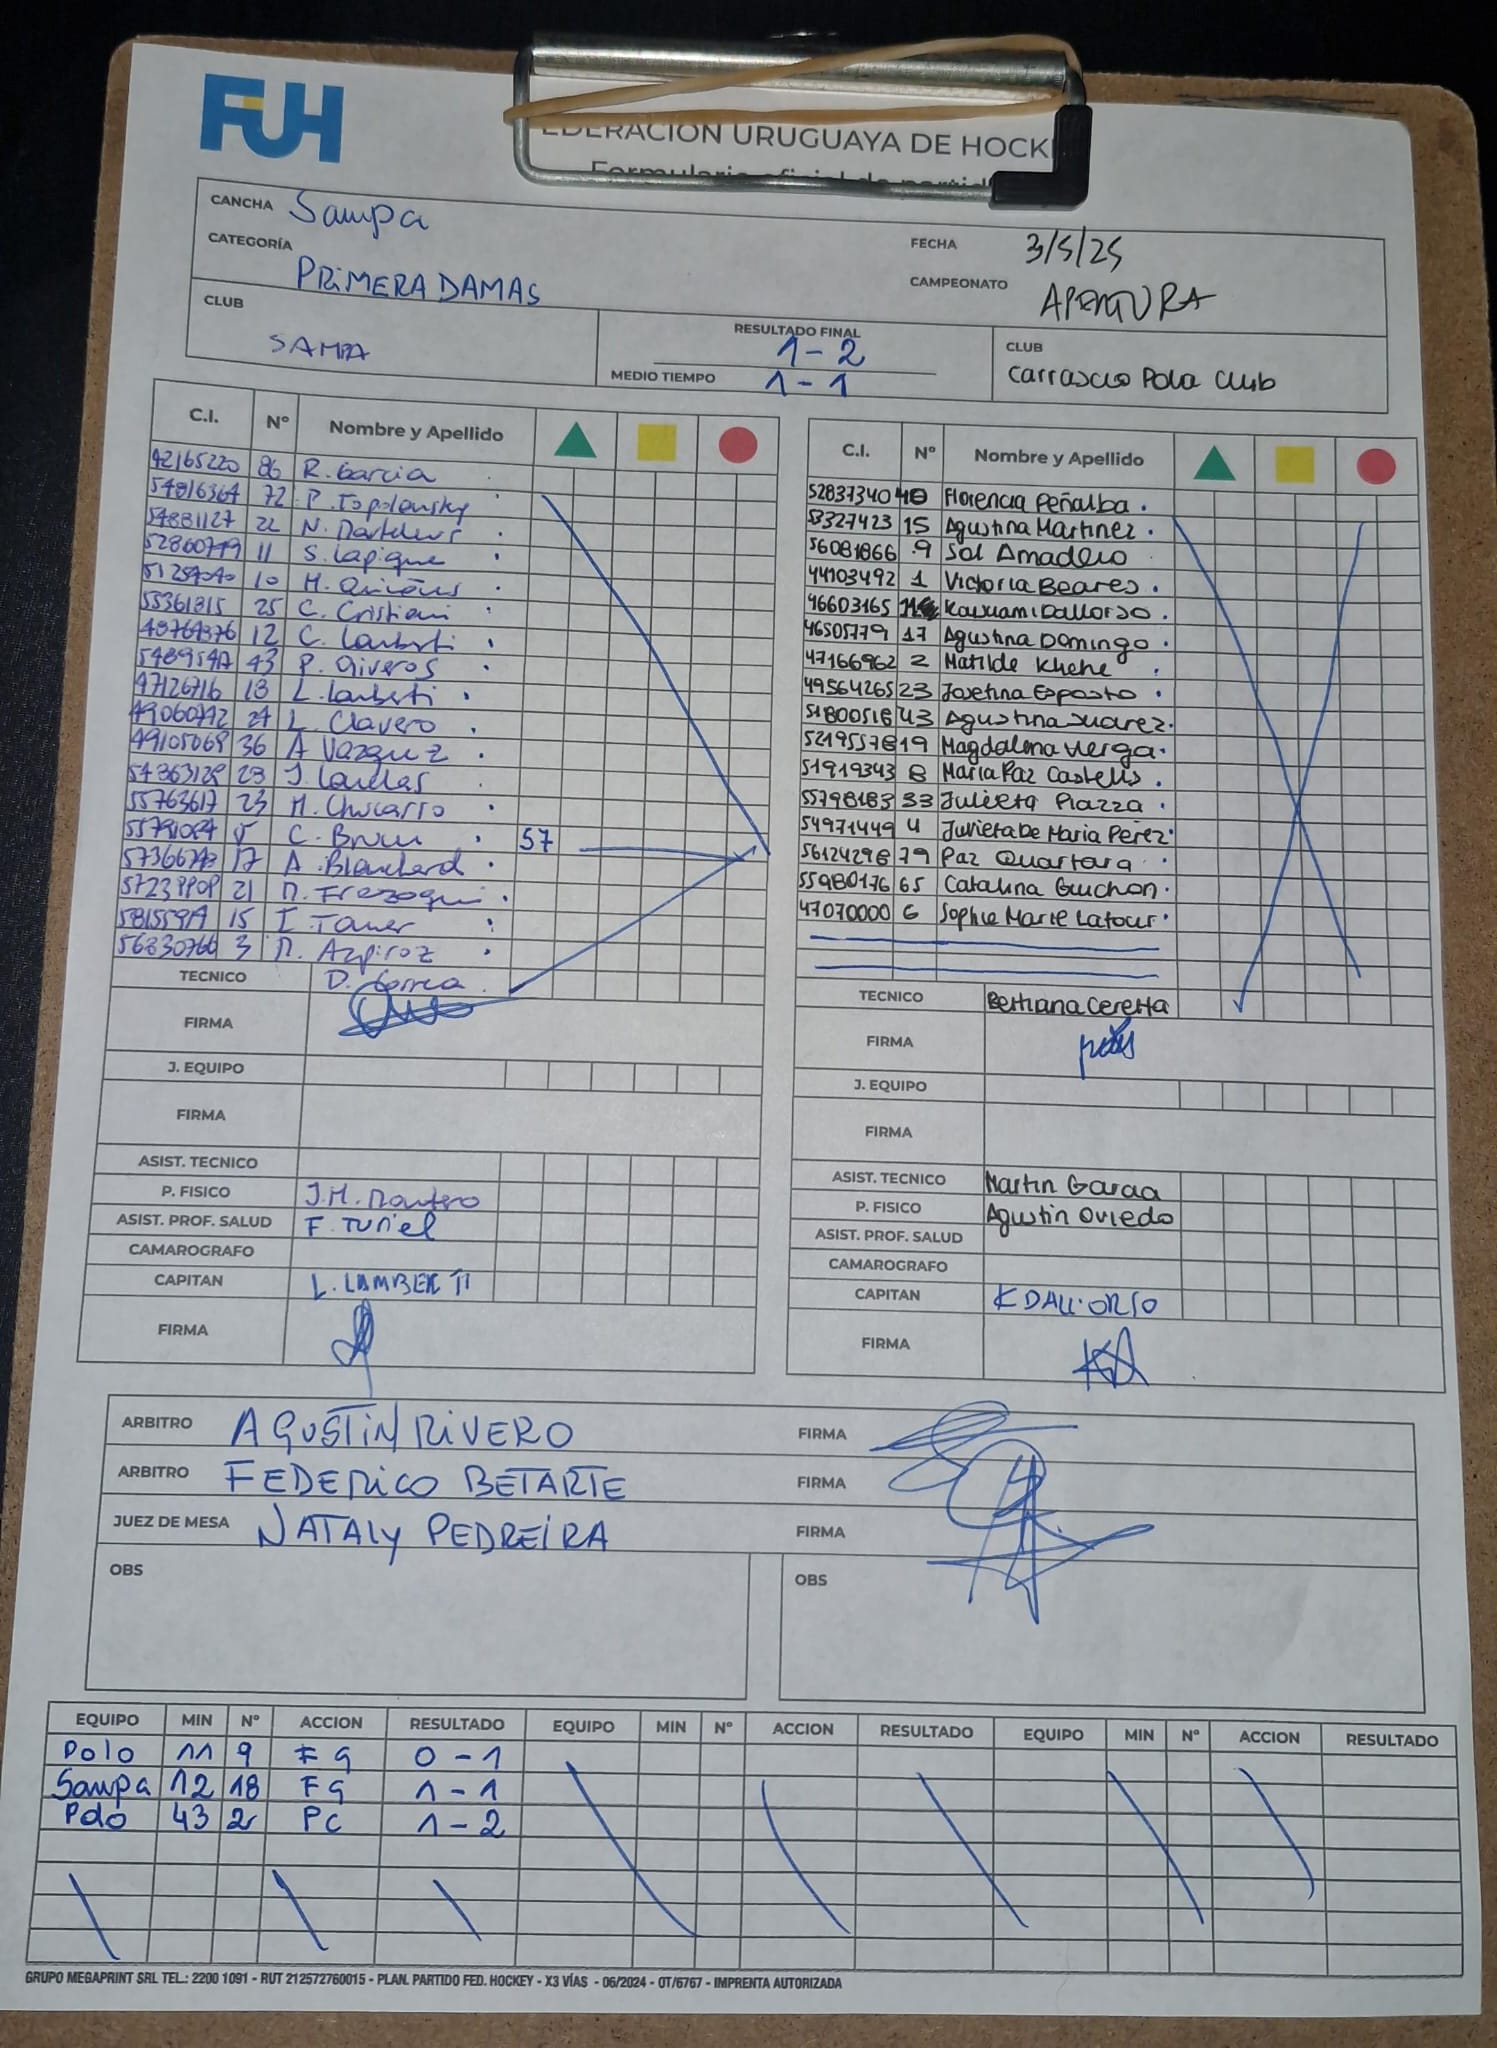 FUH
FEDERACIÓN URUGUAYA DE HOCK
Formulario oficial de partid
CANCHA Sampa
FECHA 3/5/25
CATEGORÍA PRIMERA DAMAS
CAMPEONATO APERTURA
CLUB SAMPA
RESULTADO FINAL 1-2
MEDIO TIEMPO 1-1
CLUB Carrasco Polo Club
C.I. Nº Nombre y Apellido
42165220 86 R. Garcia
54816364 72 P. Topolansky
54881127 22 N.
11 S. Lapique
10 M.
55361815 25 C. Cristiani
12 C. Lamberti
43 P. Oliveros
47126716 18 L. Lamberti
L. Clavero
49105069 36 A Vazquez
23 J.
55763617 23 M. Chucarro
C. Brum 57
17 A. Blanchard
21
15 I.
3 M. Azpiroz
TECNICO D. Correa
FIRMA
J. EQUIPO
FIRMA
ASIST. TECNICO
P. FISICO J.M. Mantero
ASIST. PROF. SALUD F. Turiel
CAMAROGRAFO
CAPITAN L. LAMBERTI
FIRMA
C.I. Nº Nombre y Apellido
52837340 40 Florencia Peñalba
53327423 15 Agustina Martinez
56081866 9 Sol Amadeo
44103492 1 Victoria Beares
46603165 Kaixuami Dallorso
46505779 17 Agustina Domingo
47166962 2 Matilde Khene
49564265 23 Josefina Esposto
51800518 43 Agustina Suarez
52195578 19 Magdalena Verga
51919343 8 Maria Paz Castells
55798183 33 Julieta Piazza
54971449 4 Julieta De Maria Perez
56124298 79 Paz Quartara
55980176 65 Catalina Guichon
47070000 6 Sophie Marie Latour
TECNICO Bettiana Ceretta
FIRMA
J. EQUIPO
FIRMA
ASIST. TECNICO Martin Garcia
P. FISICO Agustin Oviedo
ASIST. PROF. SALUD
CAMAROGRAFO
CAPITAN K DALL'ORSO
FIRMA
ARBITRO AGUSTIN RIVERO FIRMA
ARBITRO FEDERICO BETARTE FIRMA
JUEZ DE MESA NATALY PEDREIRA FIRMA
OBS OBS
EQUIPO MIN Nº ACCION RESULTADO EQUIPO MIN Nº ACCION RESULTADO EQUIPO MIN Nº ACCION RESULTADO
Polo 11 9 FG 0-1
Sampa 12 18 FG 1-1
Polo 43 2 PC 1-2
GRUPO MEGAPRINT SRL TEL.: 2200 1091 - RUT 212572760015 - PLAN. PARTIDO FED. HOCKEY - X3 VÍAS - 06/2024 - OT/6767 - IMPRENTA AUTORIZADA